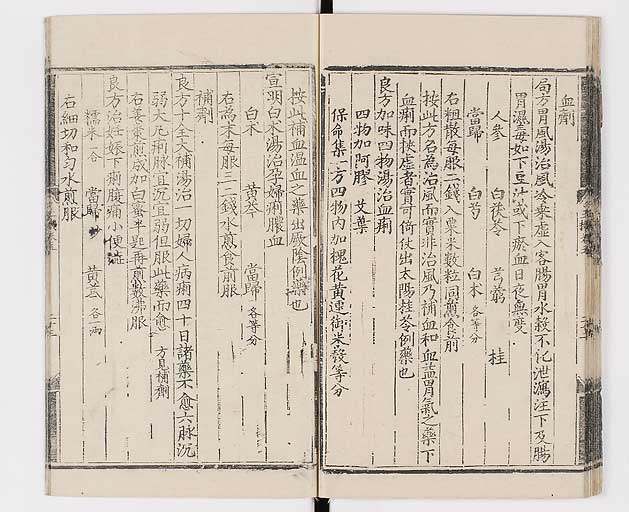 血劑
局方胃風湯治風冷乘虛入客腸胃水穀不化泄瀉注下及腸
胃濕毒如下豆汁或下瘀血日夜無度
人參 白茯苓 芎藭 桂
當歸 白芍 白朮各等分
右粗散每服二錢入粟米數粒同煎食前
按此方名為治風而實非治風乃補血和血益胃氣之藥下
血痢而挾虛者實可倚仗出太陽桂苓例藥也
良方加味四物湯治血痢
四物加阿膠 艾葉
保命集一方四物內加槐花黃連御米殼等分
按此補血溫血之藥出厥陰例藥也
宣明白朮湯治孕婦痢膿血
白朮 黃芩 當歸各等分
右為末每服三二錢水煎食前服
補劑
良方十全大補湯治一切婦人病痢四十日諸藥不愈六脉沉
弱大凡痢脉宜沉宜弱但服此藥而愈 方見補劑
右姜棗煎成加白蜜半匙再煎數沸服
良方治妊娠下痢腹痛小便澁
糯米一合 當歸炒 黃芪各兩
右細切和勻水煎服